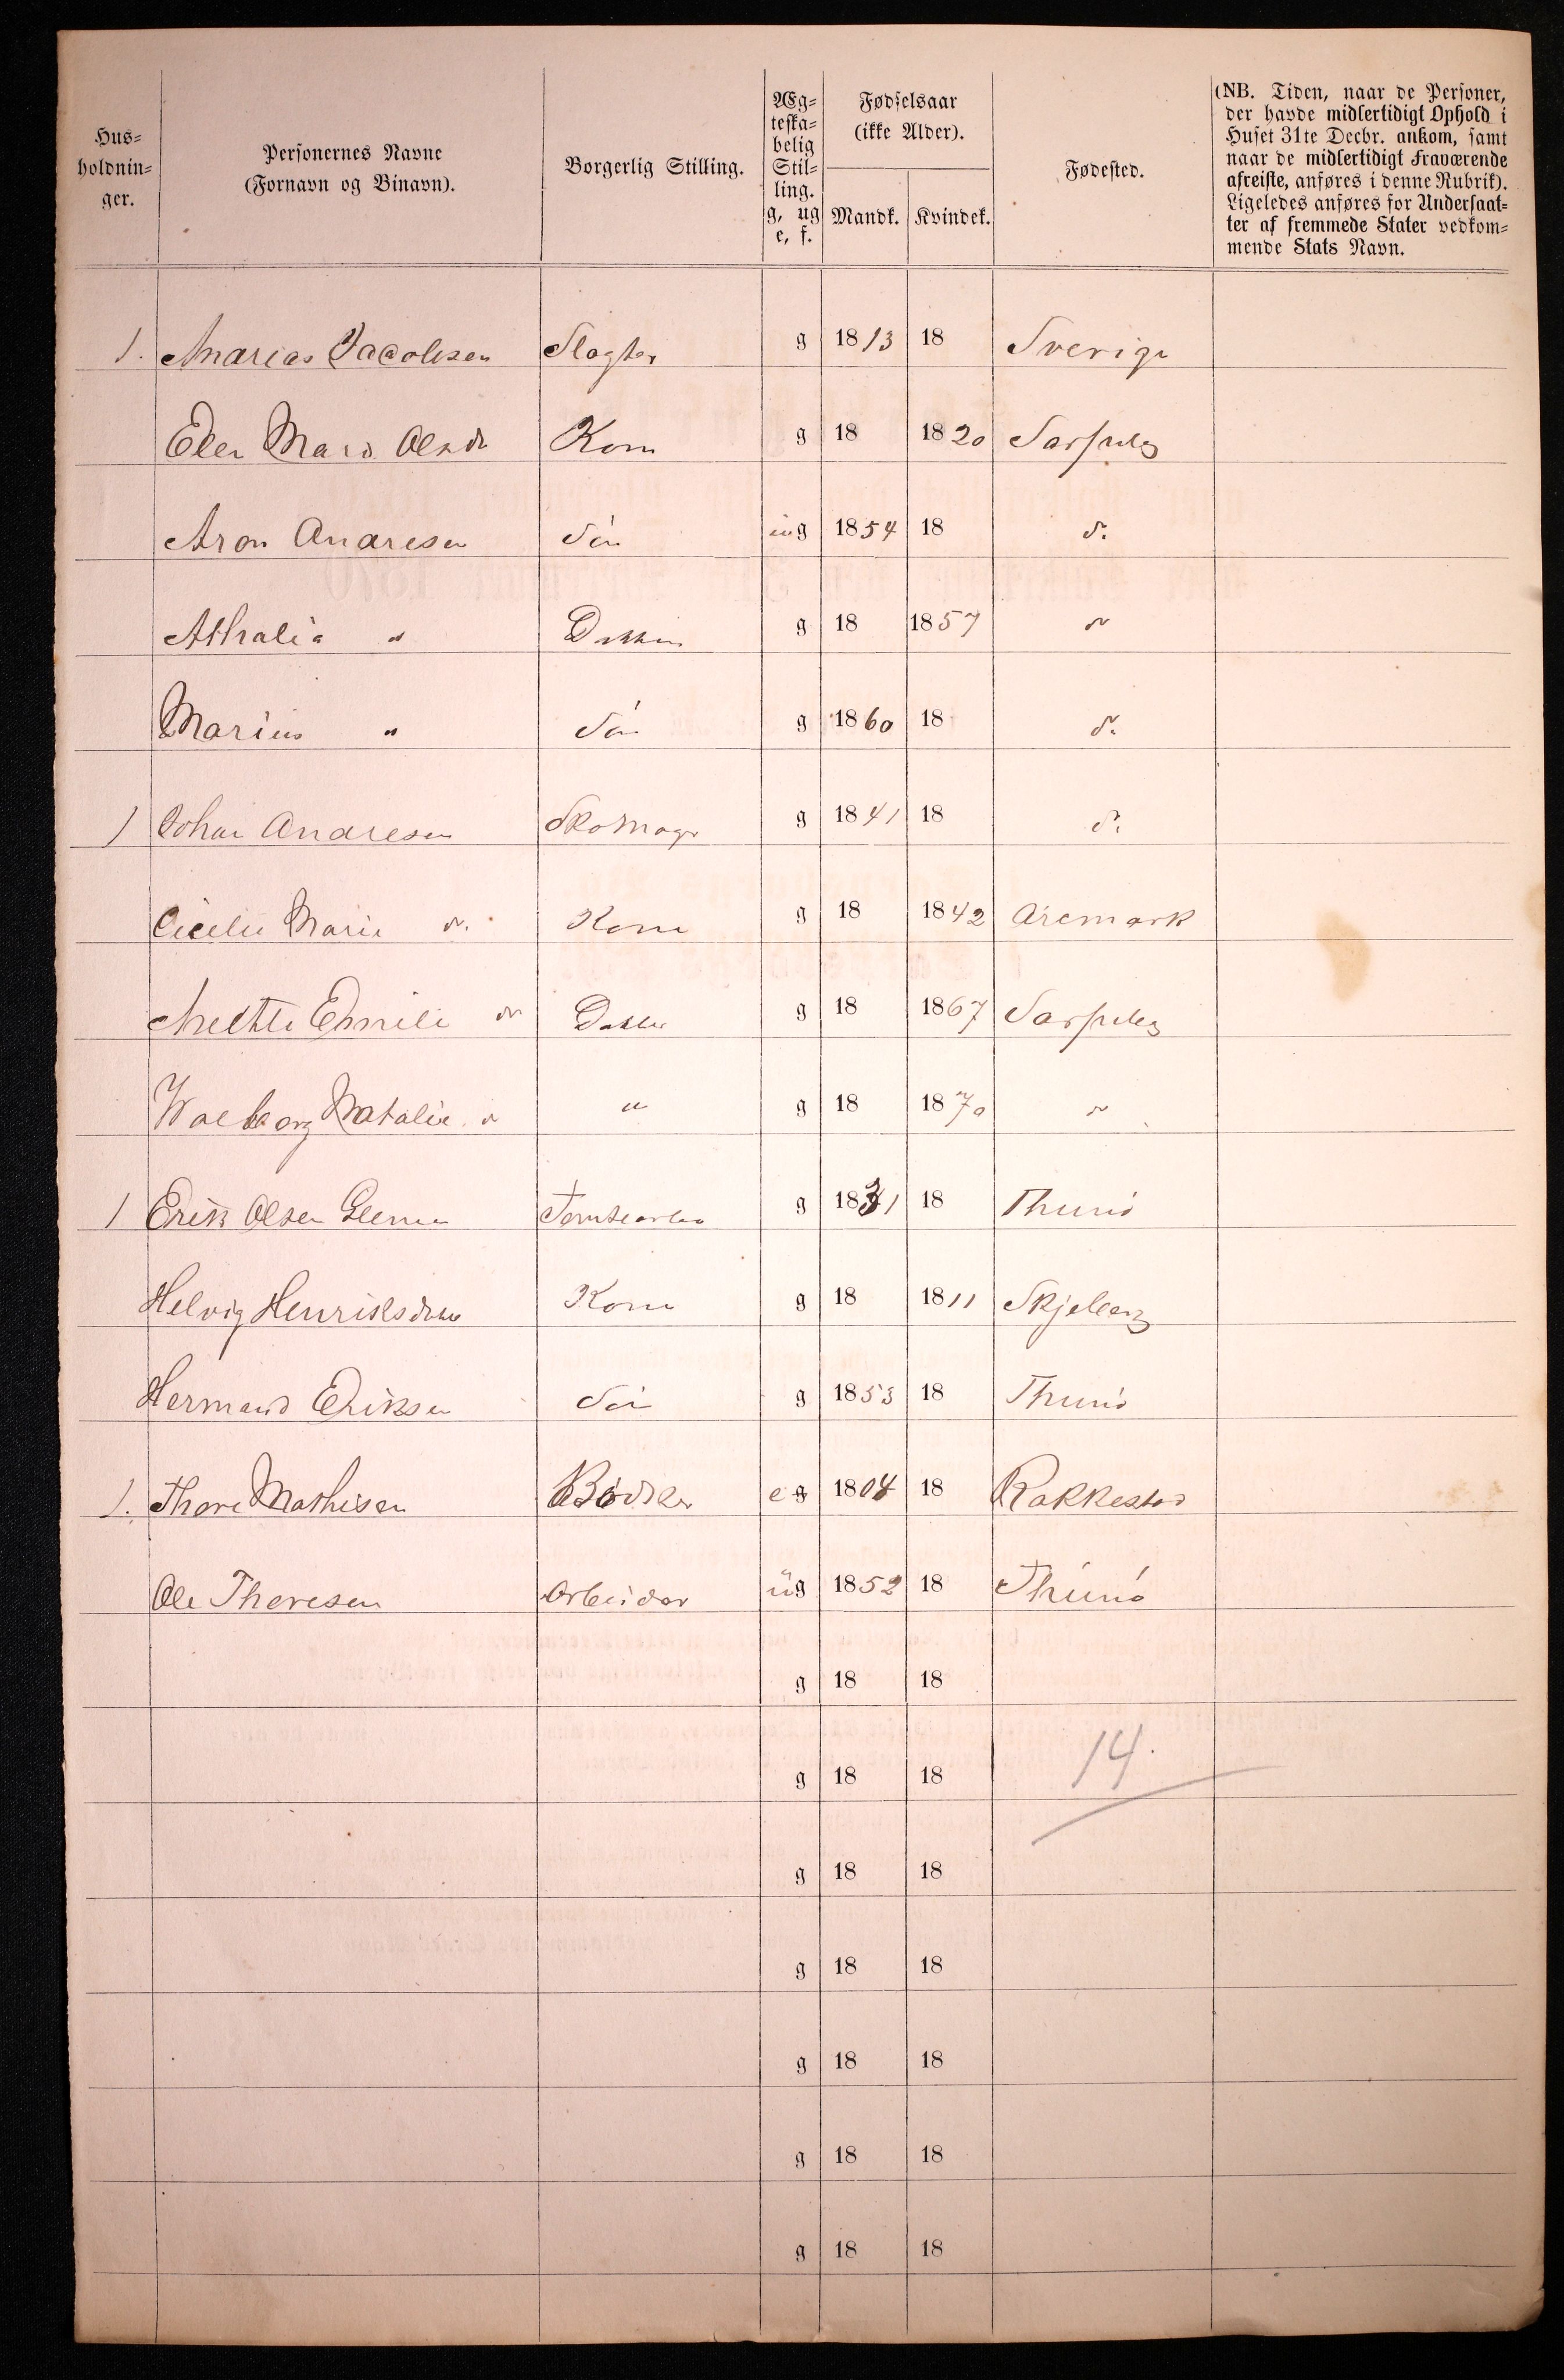 Hus-
holdnin-
ger.
Personernes Navne
(Fornavn og Binavn).
Borgerlig Stilling.
Æg-
teska-
belig
Stil-
ling.
g, ug
e, f.
Fødselsaar
(ikke Alder).
Mandk. Kvindek.
Fødested.
(NB. Tiden, naar de Personer,
der havde midlertidigt Ophold i
Huset 31te Decbr. ankom, samt
naar de midlertidigt Fraværende
afreiste, anføres i denne Rubrik).
Ligeledes anføres for Undersaat-
ter af fremmede Stater vedkom-
mende Stats Navn.
1. Andreas Jacobsen Slagter g 1813 18 Sverige
Elen Marie Olsdr Kone g 18 1820 Sarpsbg
Aron Andresen Sön ug 1854 18 d.
Athalia " Datter g 18 1857 "
Marius " Sön g 1860 18 d.
1 Johan Andresen Skomager g 1841 18 d.
Cicelie Marie d. Kone g 18 1842 Aremark
Anette Emilie d. Datter g 18 1867 Sarpsbg
Walborg Natalie d. " g 18 1870 "
1 Erik Olsen Glemm g 1831 18 Thunö
Helvig Henriksdatter Kone g 18 1811 Skjeberg
Hermand Eriksen Sön g 1853 18 Thunö
1. Thore Mathisen Bödker e g 1804 18 Rakkestad
Ole Thoresen Arbeider ug 1852 18 Thunö
g 18 18
g 18 18 14.
g 18 18
g 18 18
g 18 18
g 18 18
g 18 18